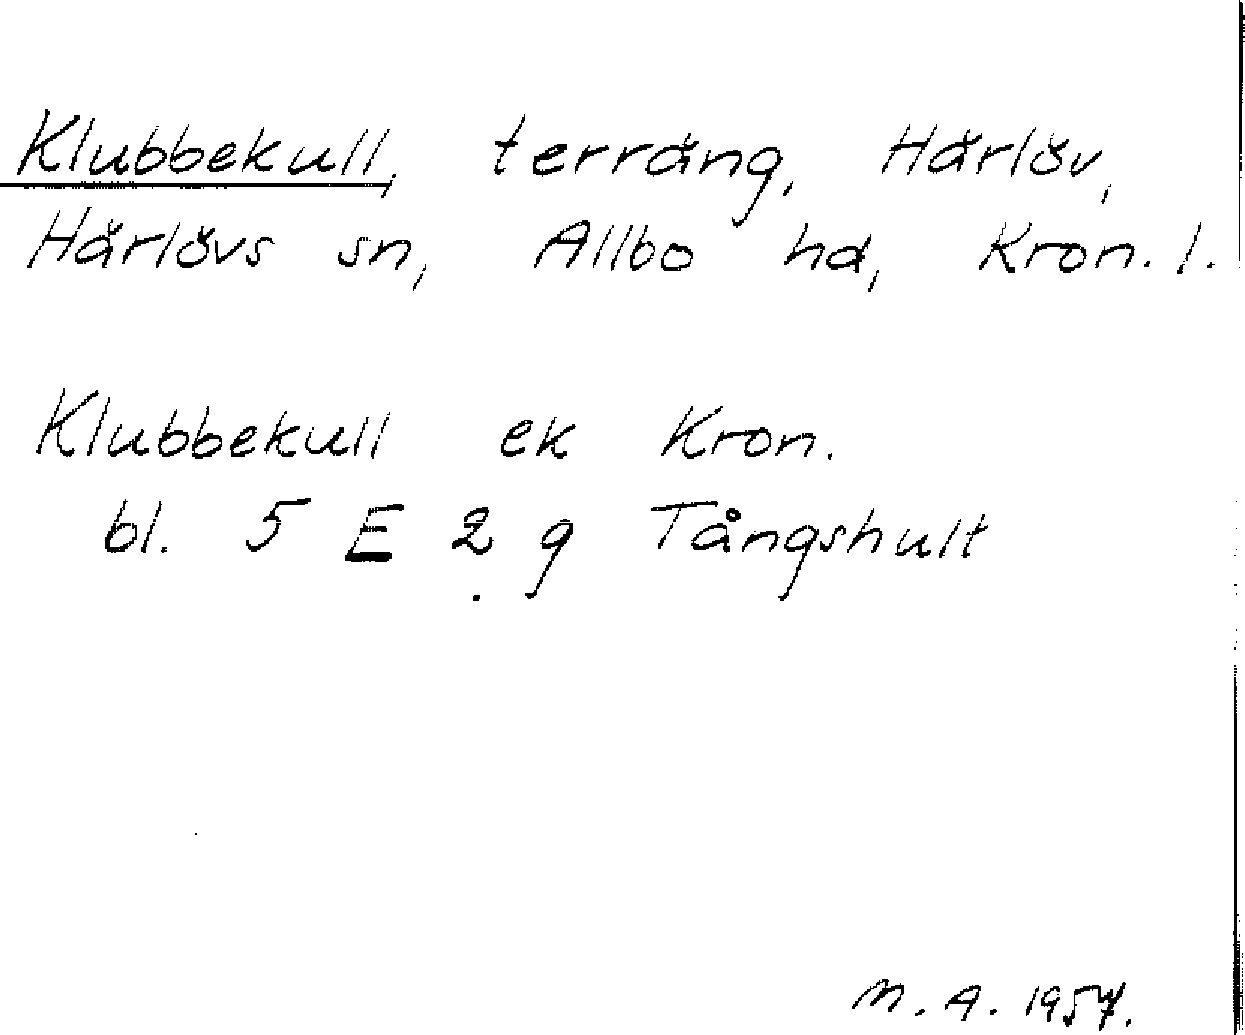 Klubbekull, terräng, Härlöv,
Härlövs sn, Allbo hd, Kron. l.
Klubbekull ek Kron.
bl. 5 E 2 g Tångshult
M. A. 1957.